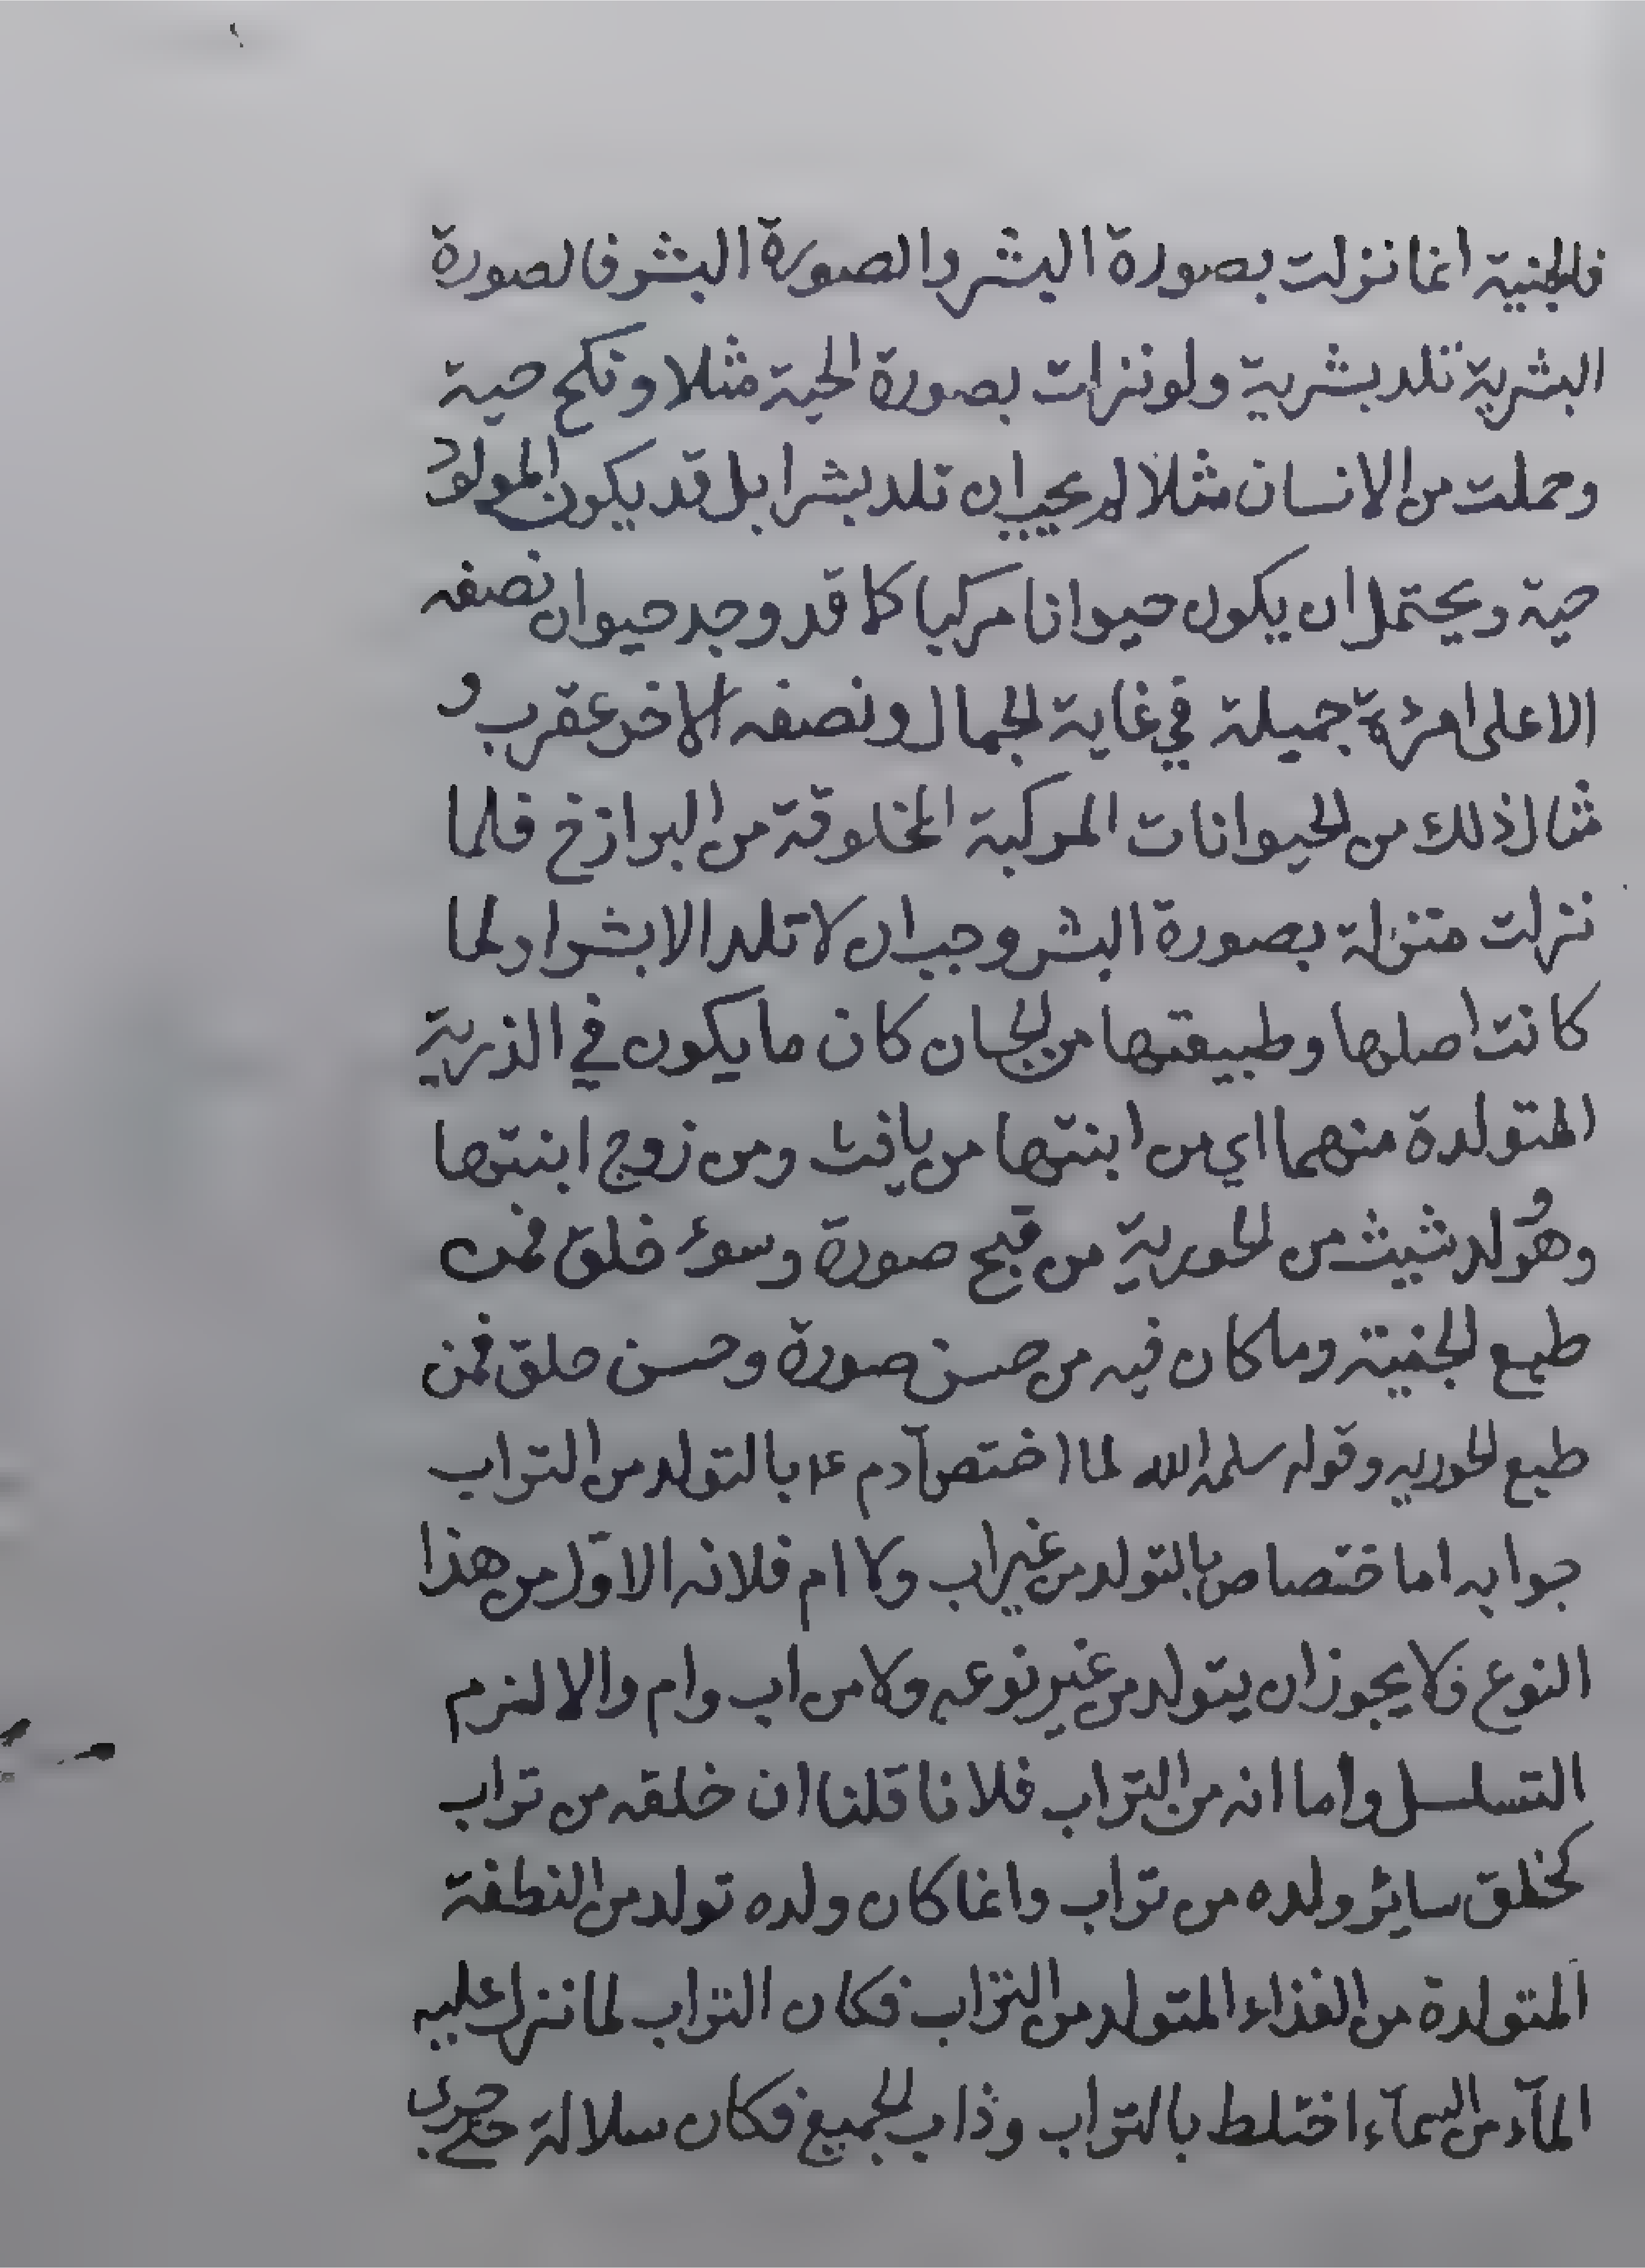 فالجنية انما نزلت بصورة البشر والصورة البشر فالصورة
البشرية تلد بشرية ولو نزلت بصورة الحية مثلا ونكح حية
وحملت من الانسان مثلا لم يجب ان تلد بشرا بل قد يكون المولود
حية ويحتمل ان يكون حيوانا مركبا كما قد وجد حيوان نصفه
الاعلى امرئة جميلة في غاية الجمال ونصفه الاخر عقرب و
مثال ذلك من الحيوانات المركبة المخلوقة من البرازخ فلما
نزلت متنزلة بصورة البشر وجب ان لا تلد الا بشرا ولما
كانت اصلها وطبيعتها من الجان كان ما يكون في الذرية
المتولدة منهما اي من ابنتها من يافث ومن زوج ابنتها
وهو ولد شيث من الحورية من قبح صورة وسوء خلق فمن
طبع الجنية وما كان فيه من حسن صورة وحسن خلق فمن
طبع الحوريه وقوله سلمه الله لما اختص آدم ع بالتولد من التراب
جوابه اما ختصاص بالتولد من غير اب ولا ام فلانه الاوّل من هذا
النوع فلا يجوز ان يتولد من غير نوعه ولا من اب وام والا لزم
التسلسل واما انه من التراب فلانا قلنا ان خلقه من تراب
كخلق سائر ولده من تراب وانما كان ولده تولد من النطفة
المتولدة من الغذاء المتولد من التراب فكان التراب لما نزل عليه
المآء من السمآء اختلط بالتراب وذاب الجميع فكان سلالة حتى جرى